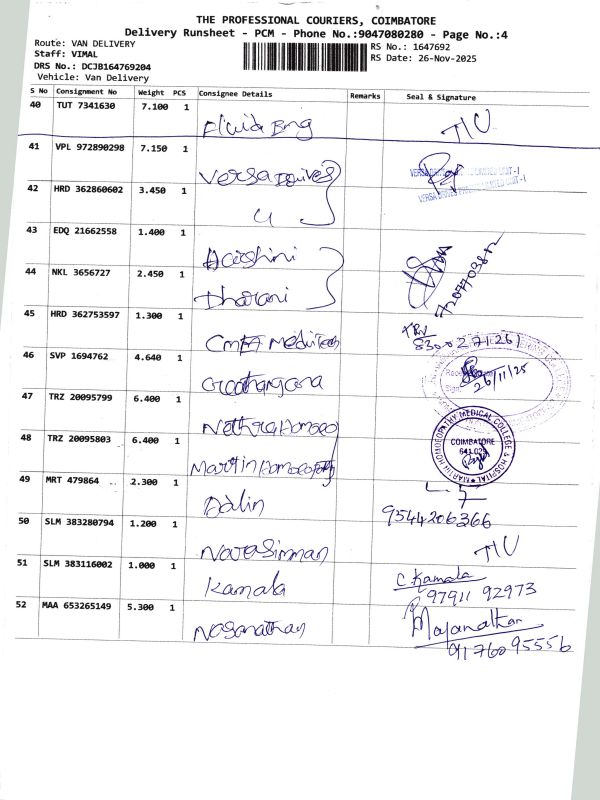 THE PROFESSIONAL COURIERS, COIMBATORE
Delivery Runsheet - PCM - Phone No.:9047080280 - Page No.:4
Route: VAN DELIVERY
Staff: VIMAL
DRS No.: DCJB164769204
Vehicle: Van Delivery
RS No.: 1647692
RS Date: 26-Nov-2025
S No Consignment No Weight PCS Consignee Details Remarks Seal & Signature
40 TUT 7341630 7.100 1 Fluid Eng
41 VPL 972890298 7.150 1 Versa Drives
42 HRD 362860602 3.450 1 "
43 EDQ 21662558 1.400 1
44 NKL 3656727 2.450 1 Dharani 7207703872
45 HRD 362753597 1.300 1 8300271261
46 SVP 1694762 4.640 1 26/11/25
47 TRZ 20095799 6.400 1 Nethra Homoeo
48 TRZ 20095803 6.400 1 Martin Homoeopathy
MARTIN HOMOEOPATHY MEDICAL COLLEGE & HOSPITAL COIMBATORE
49 MRT 479864 2.300 1 Dalin 9544206366
50 SLM 383280794 1.200 1 Narasimman
51 SLM 383116002 1.000 1 Kamala C. Kamala
97911 92973
52 MAA 653265149 5.300 1
91760 95556